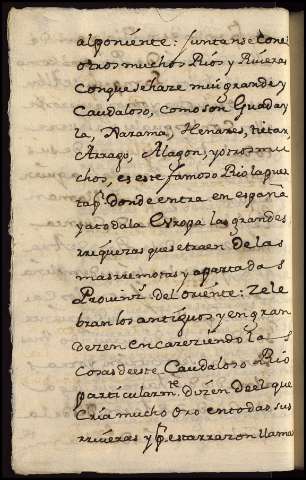 al poniente: Juntanse Con el
otros muchos Rios y Riveras
Con que se haze mui grande y
Caudaloso, Como son Guadaya
la, Xarama, Henares, tietar,
Arrago, Alagon, y otros mu
chos, es este famoso Rio la puer
ta pr. donde entra en españa
y a toda la Evropa las grandes
rriquezas que se traen de las
mas rremotas y apartadas
Provinz.s del oriente: Zele
bran los antiguos y engran
dezen en Careziendo las
Cosas de este Caudaloso Rio
particularm.te dizen de el que
Cria mucho Oro en todas sus
rriveras y pr. esta rrazon llama